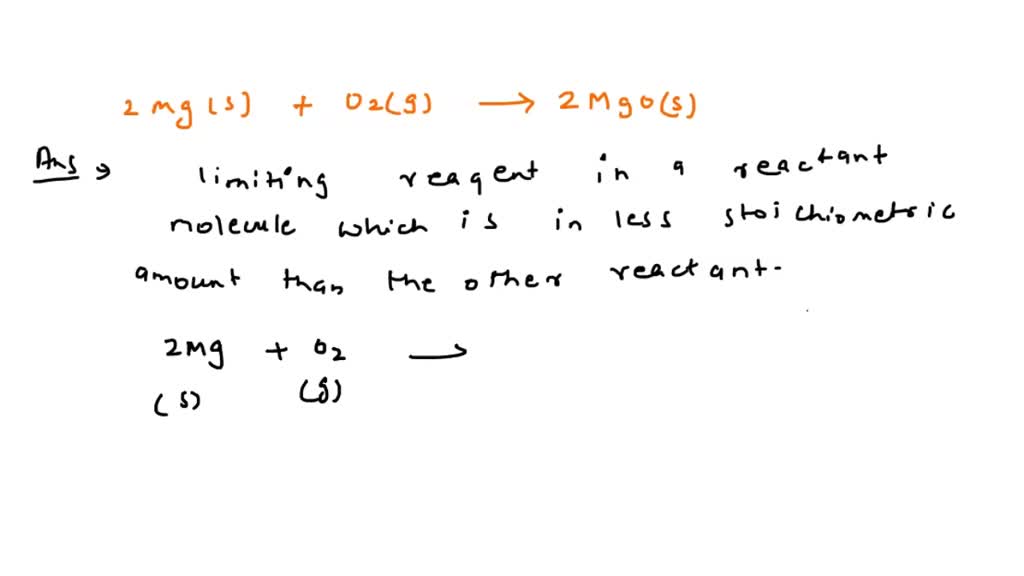 2 Mg(s) + O2(g) → 2 MgO(s)
Ans → limiting reagent in a reactant
molecule which is in less stoichiometric
amount than the other reactant.
2Mg + O2 →
(s) (g)